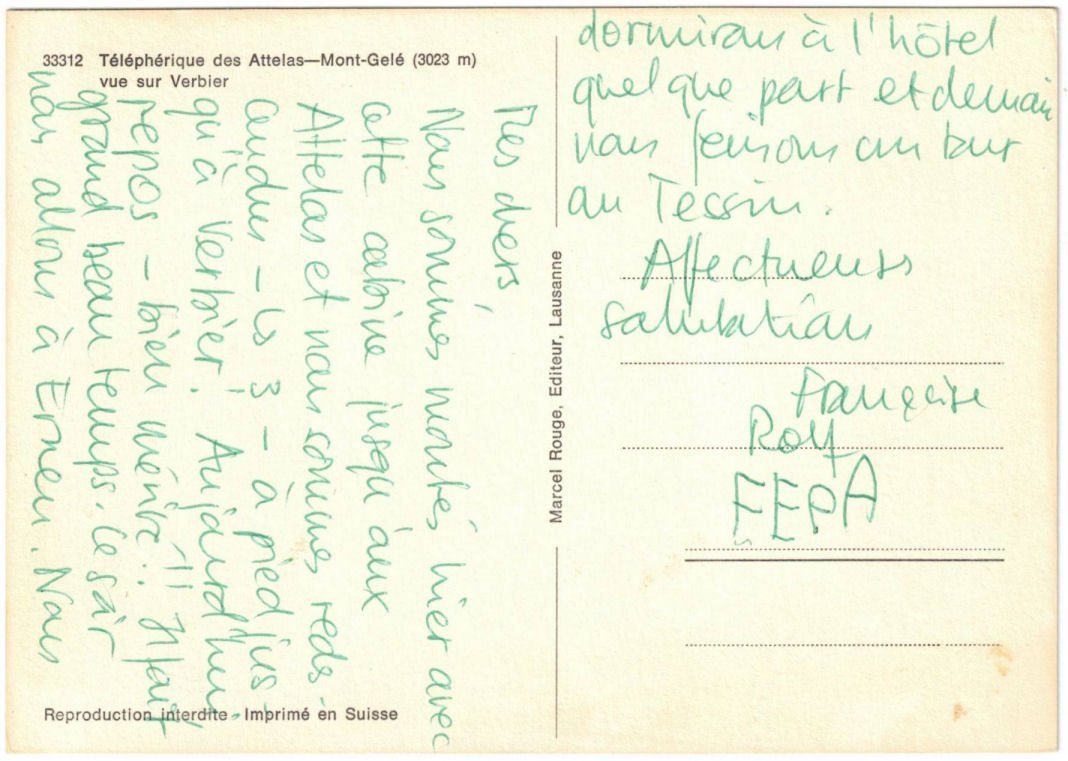 33312 Téléphérique des Attelas—Mont-Gelé (3023 m)
vue sur Verbier
Mes chers,
Nous sommes montés hier avec
cette cabine jusqu'aux
Attelas et nous sommes redes-
cendus – les 3 – à pied jus-
qu'à Verbier! Aujourd'hui,
repos – bien mérité!! Il fait
grand beau temps. Ce soir
nous allons à Ernen. Nous
dormirons à l'hôtel
quelque part et demain
nous ferons un tour
au Tessin.
Affectueuses
salutations
Françoise
Rolf
Marcel Rouge, Editeur, Lausanne
Reproduction interdite - Imprimé en Suisse